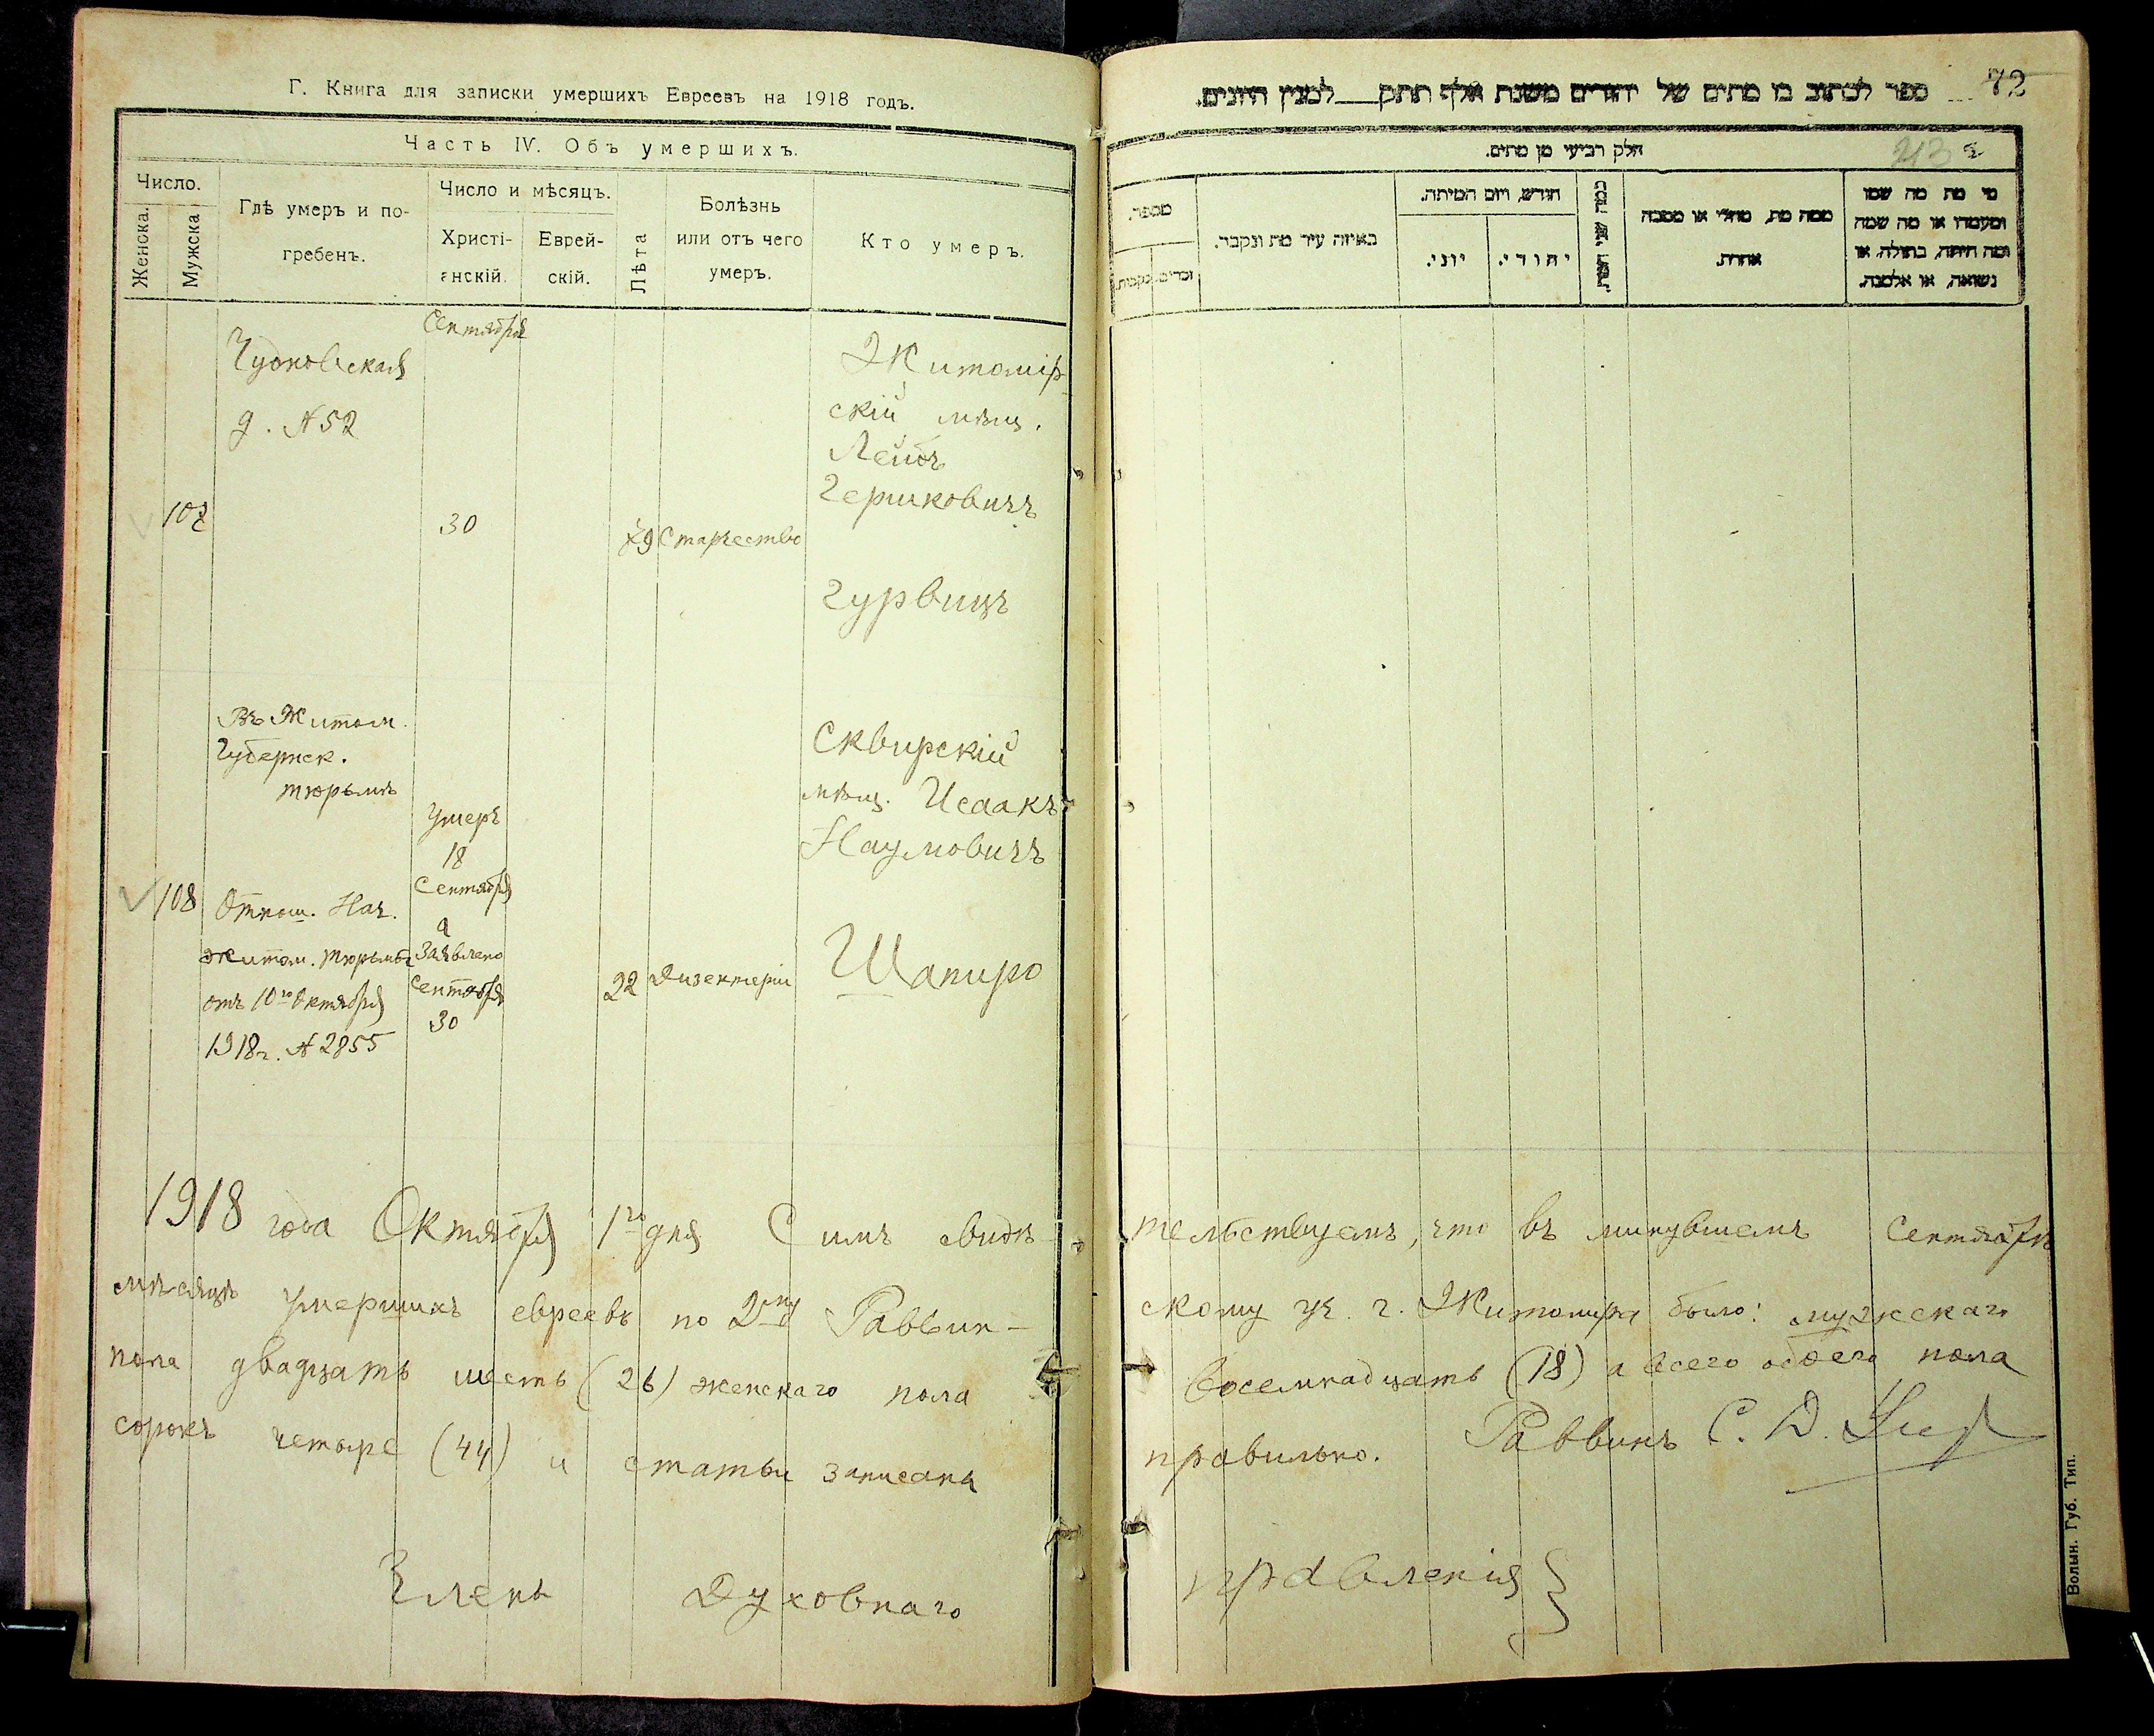 Г. Книга для записки умершихъ Евреевъ на 1918 годъ.
Часть IV. Объ умершихъ.
Число.
Женска.
Мужска
Гдѣ умеръ и по-
гребенъ.
Число и мѣсяцъ.
Христі-
анскій.
Еврей-
скій.
Лѣта
Болѣзнь
или отъ чего
умеръ.
Кто умеръ.
Сентября
Чудновская
д. № 52
107
30
79
Старчество
Житомір-
скій мѣщ.
Лейбъ
Гершковичъ
Гурвицъ
Въ Житом.
Губернск.
тюрьмѣ
108
Отнош. Нач.
житом. тюрьмы
отъ 10го Октября
1918 г. № 2855
Умеръ
18
Сентября
а
Заявлено
Сентября
30
22
Дизентеріи
Сквирскій
мѣщ. Исаакъ
Наумовичъ
Шапиро
1918 года Октября 1го дня Симъ свидѣ-
мѣсяцѣ умершихъ евреевъ по 2му Раввин-
пола двадцать шесть (26) женскаго пола
сорокъ четыре (44) и статьи записаны
Члены Духовнаго
72
ספר לכתוב בו מתים של יהודים משנת אלף תתק למנין היונים.
213
חלק רביעי מן מתים.
מספר.
זכרים.
נקבות.
באיזה עיר מת ונקבר.
חודש, ויום המיתה.
יוני.
יהודי.
כמה שני המת.
ממה מת, מחלי או מסבה
אחרת.
מי מת מה שמו
ומעמדו או מה שמה
ומה היתה, בתולה, או
נשואה, או אלמנה.
тельствуемъ, что въ минувшемъ Сентябрѣ
скому уч. г. Житомира было: мужскаго
восемнадцать (18) а всего обоего пола
правильно. Раввинъ С. Д.
правленія
Волын. Губ. Тип.